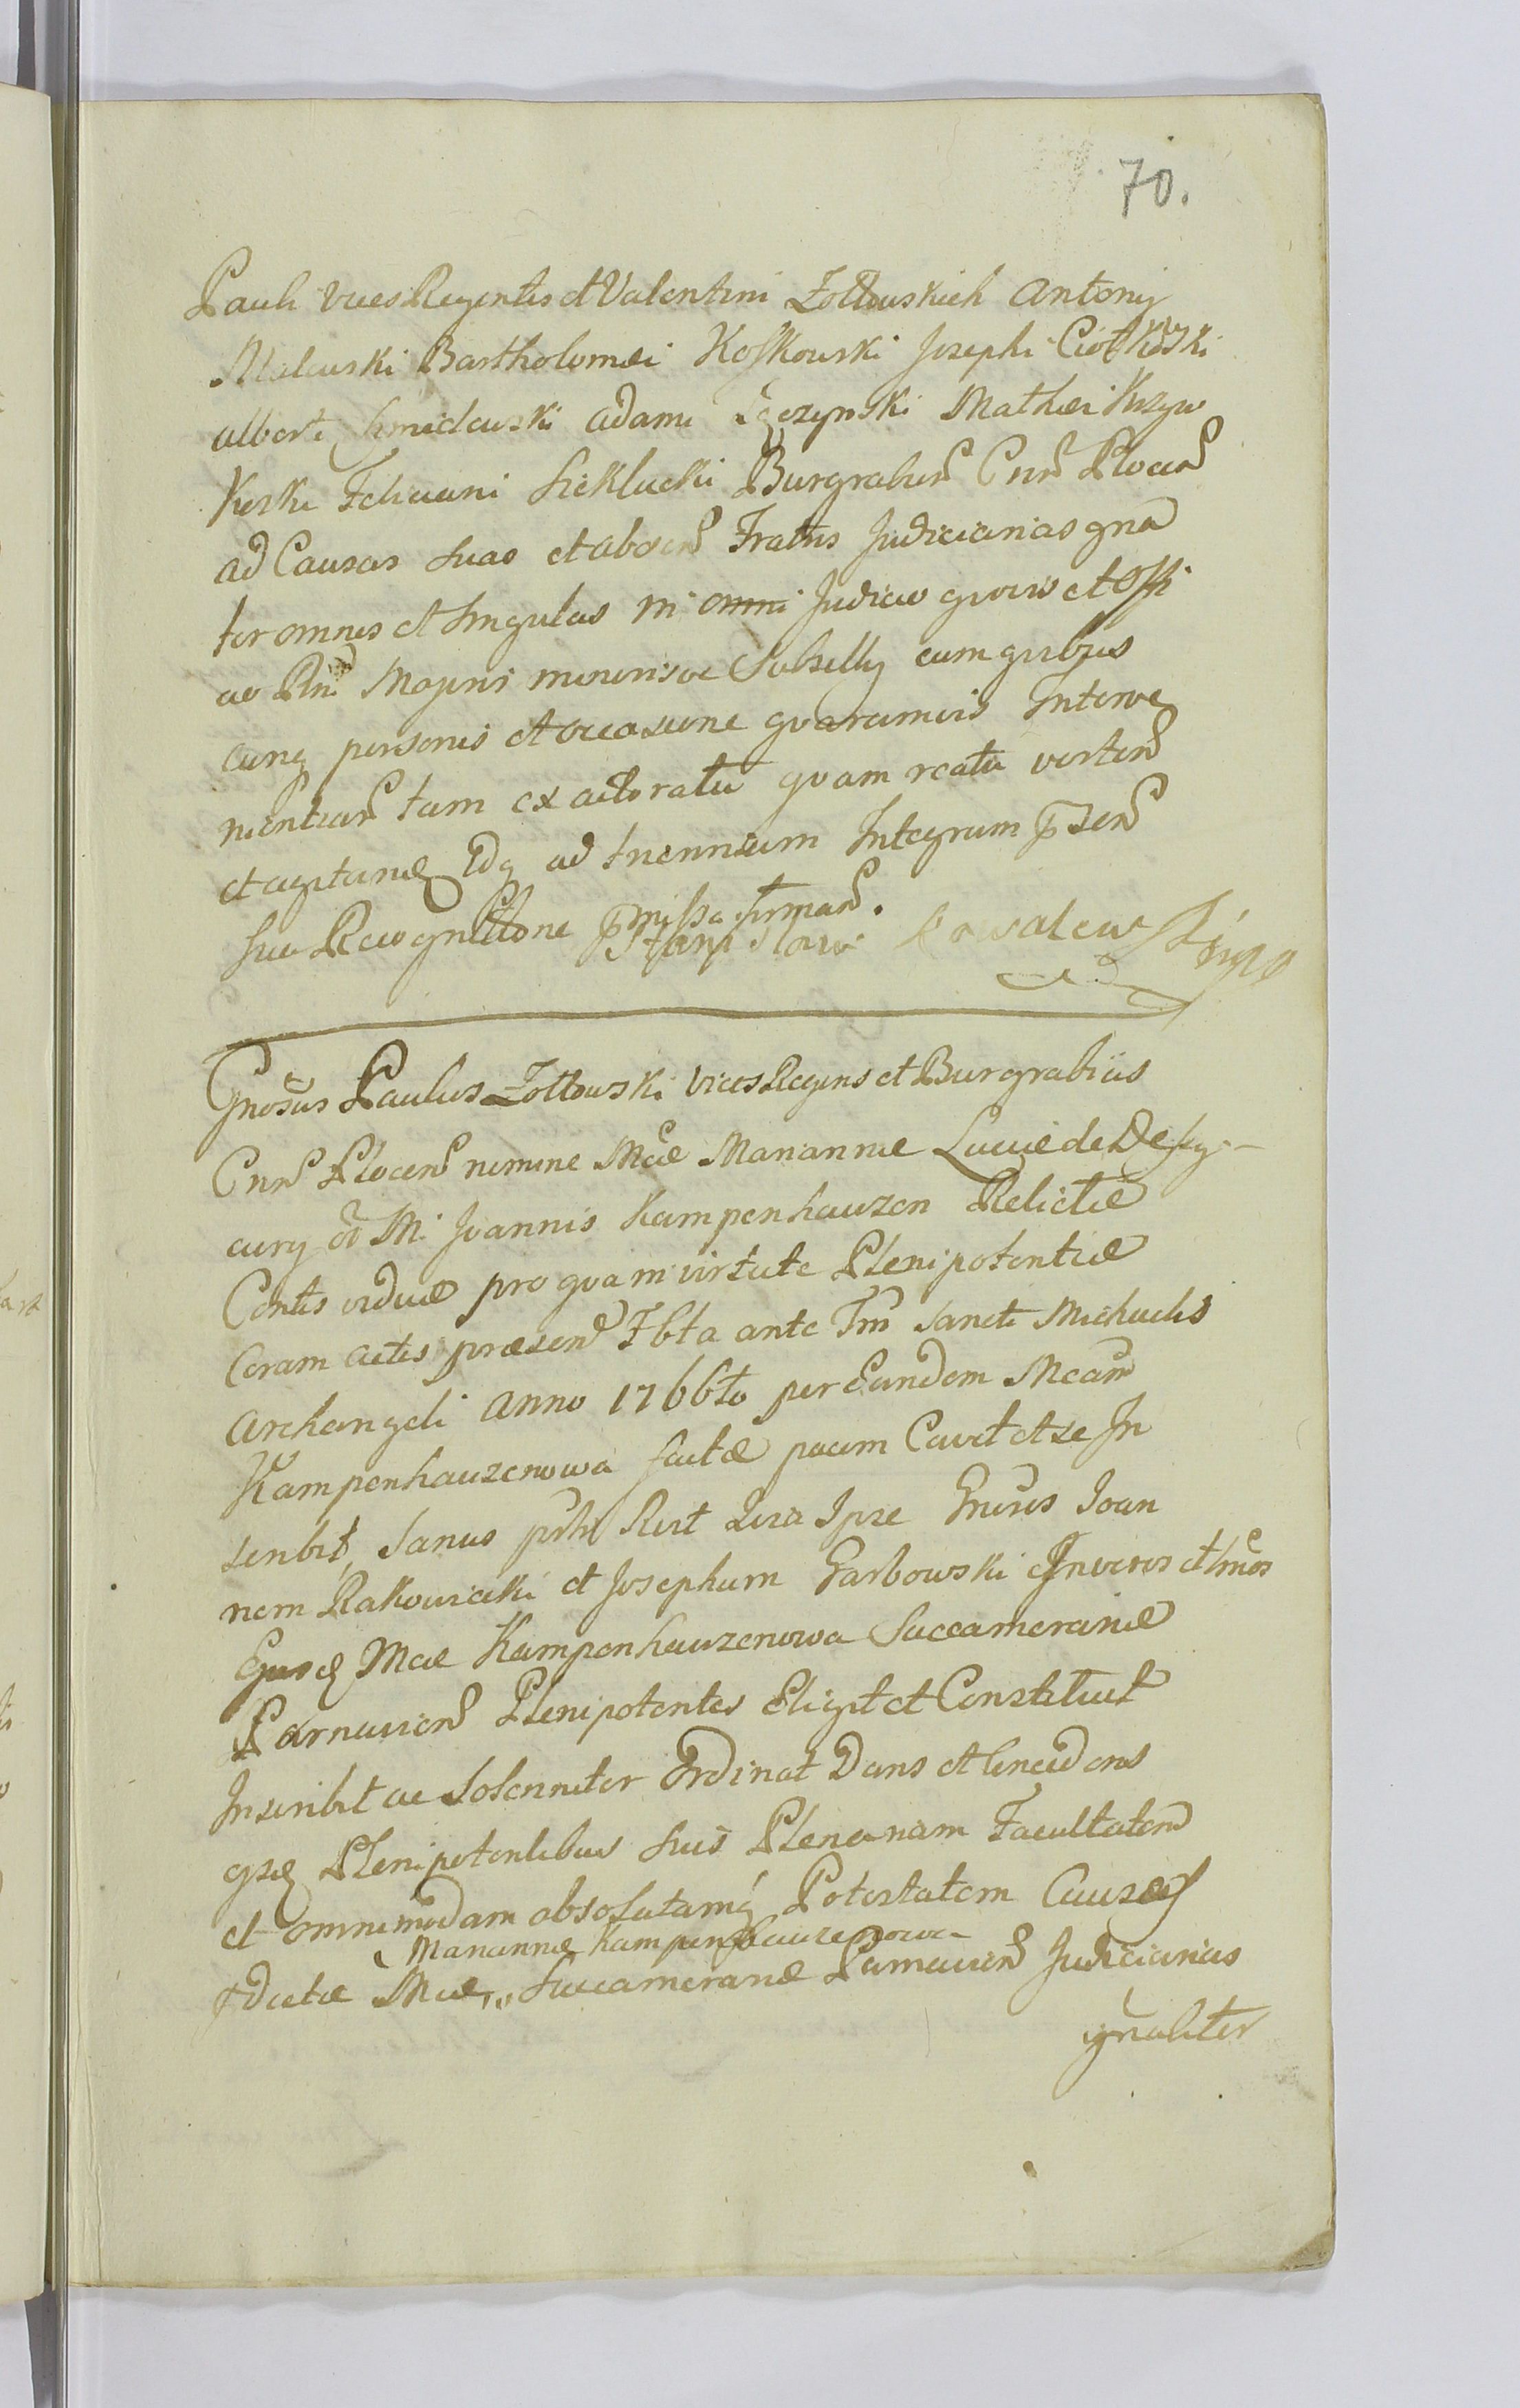 70.
Pauli vices Regentis et Valentini Zołtowskich Antonij
Malewski Bartholomei Koskowski Josephi Ciołkowski
Alberti Gmiclewski Adami Łęczynski Mathei Krzyw
koski Feliciani Siklucki Burgrabior Cnr Plocen
ad Causas suas et absen Fratris Judiciarias gna
ter omnes et singulas in omni Judicio gvovis et Offi
ac Rni Majoris minorisve Subsellij cum gvibus
cunq personis et occasione gvarumvis Interve
nientiar tam ex actoratu gvam reatu verten
et agitandz Idq ad triennium Integrum p̃sen
sua Recognitione p̃missa firman.
Stanisław Kowalewski mp
Gnosus Paulus Zołtowski vices Regens et Burgrabius
Cnr Plocen nomine Mcæ Mariannæ Luciæ de
olim M. Joannis Kampenhauzen Relictæ
Contis viduæ pro gva in virtute Plenipotentiæ
Coram actis præsen Fbta ante Fm Sancti Michaelis
Archangeli Anno 1766to per Eandem Mcam
Kampenhauzenowa factæ pacem Cavet et se In
scribit, Sanus Ipse Gnrsos Joan
nem Rakowiecki et Josephum Garbowski
Ejusdz Mcæ Kampenhauzenowa Succamerariæ
Parnavien Plenipotentes Eligit et Constituit
Inscribit ac Solenniter Ordinat Dans et Concedens
Plenipotentibus suis Plenariam Facultatem
et omnimodam absolutamq Potestatem Causas
Mariannæ Kampenhauzenowa
p̃dictæ Mcæ,,,, Succamerariæ Parnavien Judiciarias
gnaliter